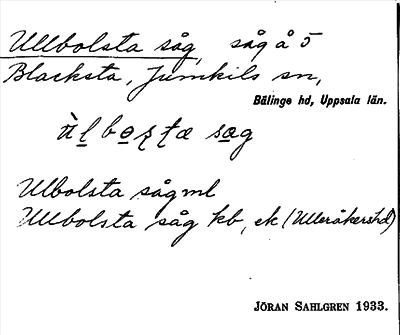 Ullbolsta såg, såg å 5
Blacksta, Jumkils sn,
Bälinge hd, Uppsala län.
Ulbolsta såg ml
Ullbolsta såg kb, ek (Ulleråkershd)
JÖRAN SAHLGREN 1933.